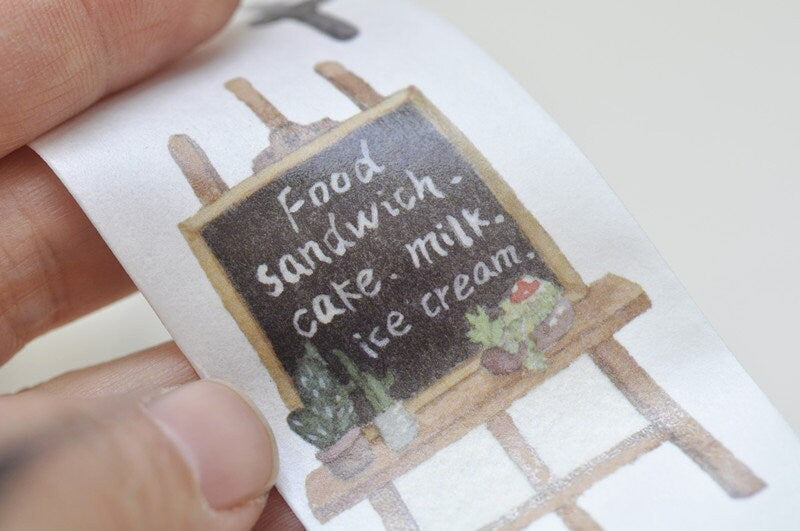 Food
sandwich.
cake. milk.
ice cream.